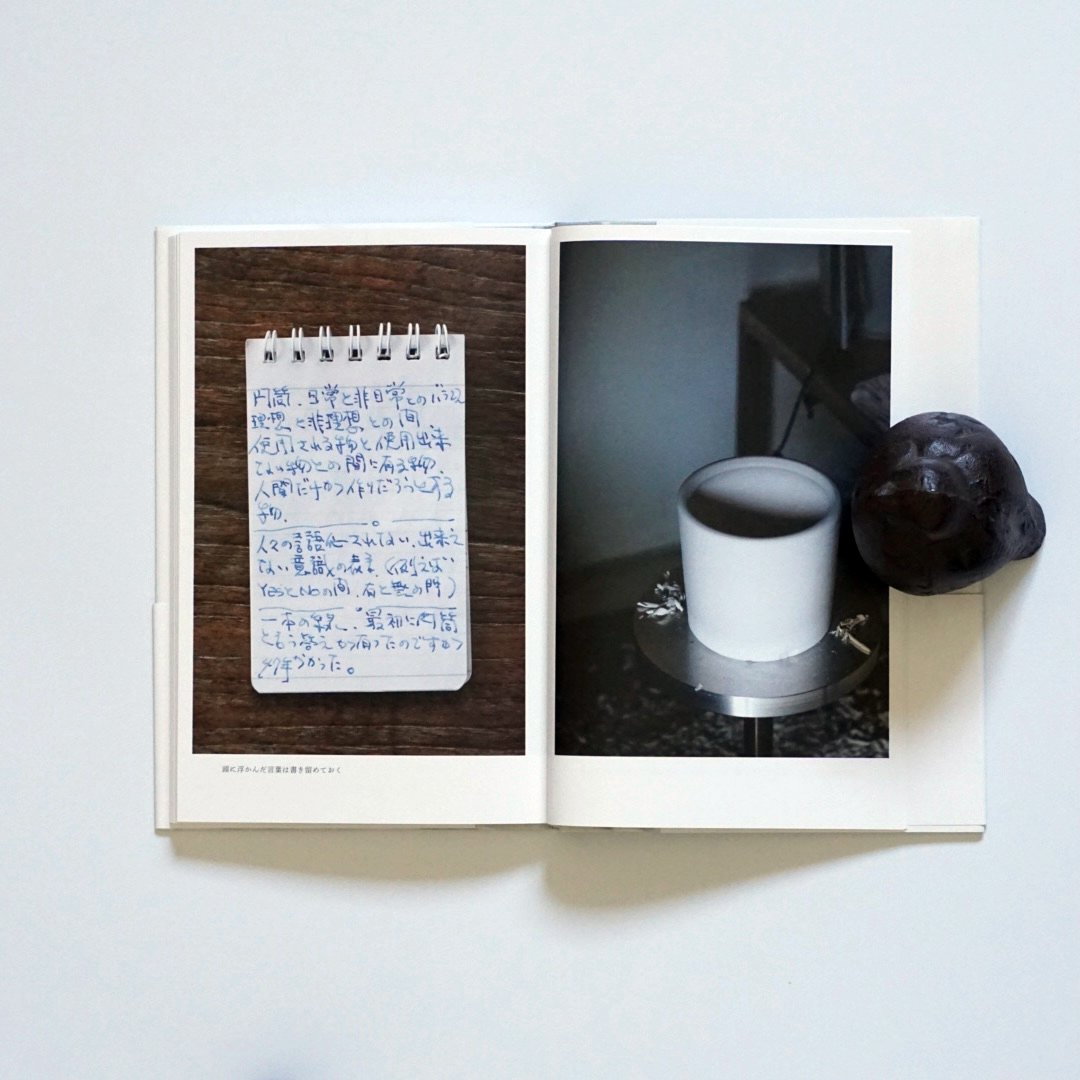 円筒、日常と非日常との
理想と非理想との間、
使用される物と使用出来
ない物との間に有る物、
人間だけが作りだろうとする
物。
人々の言語化されない、出来え
ない意識の表、(例えば
YesとNoの間、有と無の間)
一本の線、最初に円筒
ともう答えが有ったのですが
47年かかった。
頭に浮かんだ言葉は書き留めておく